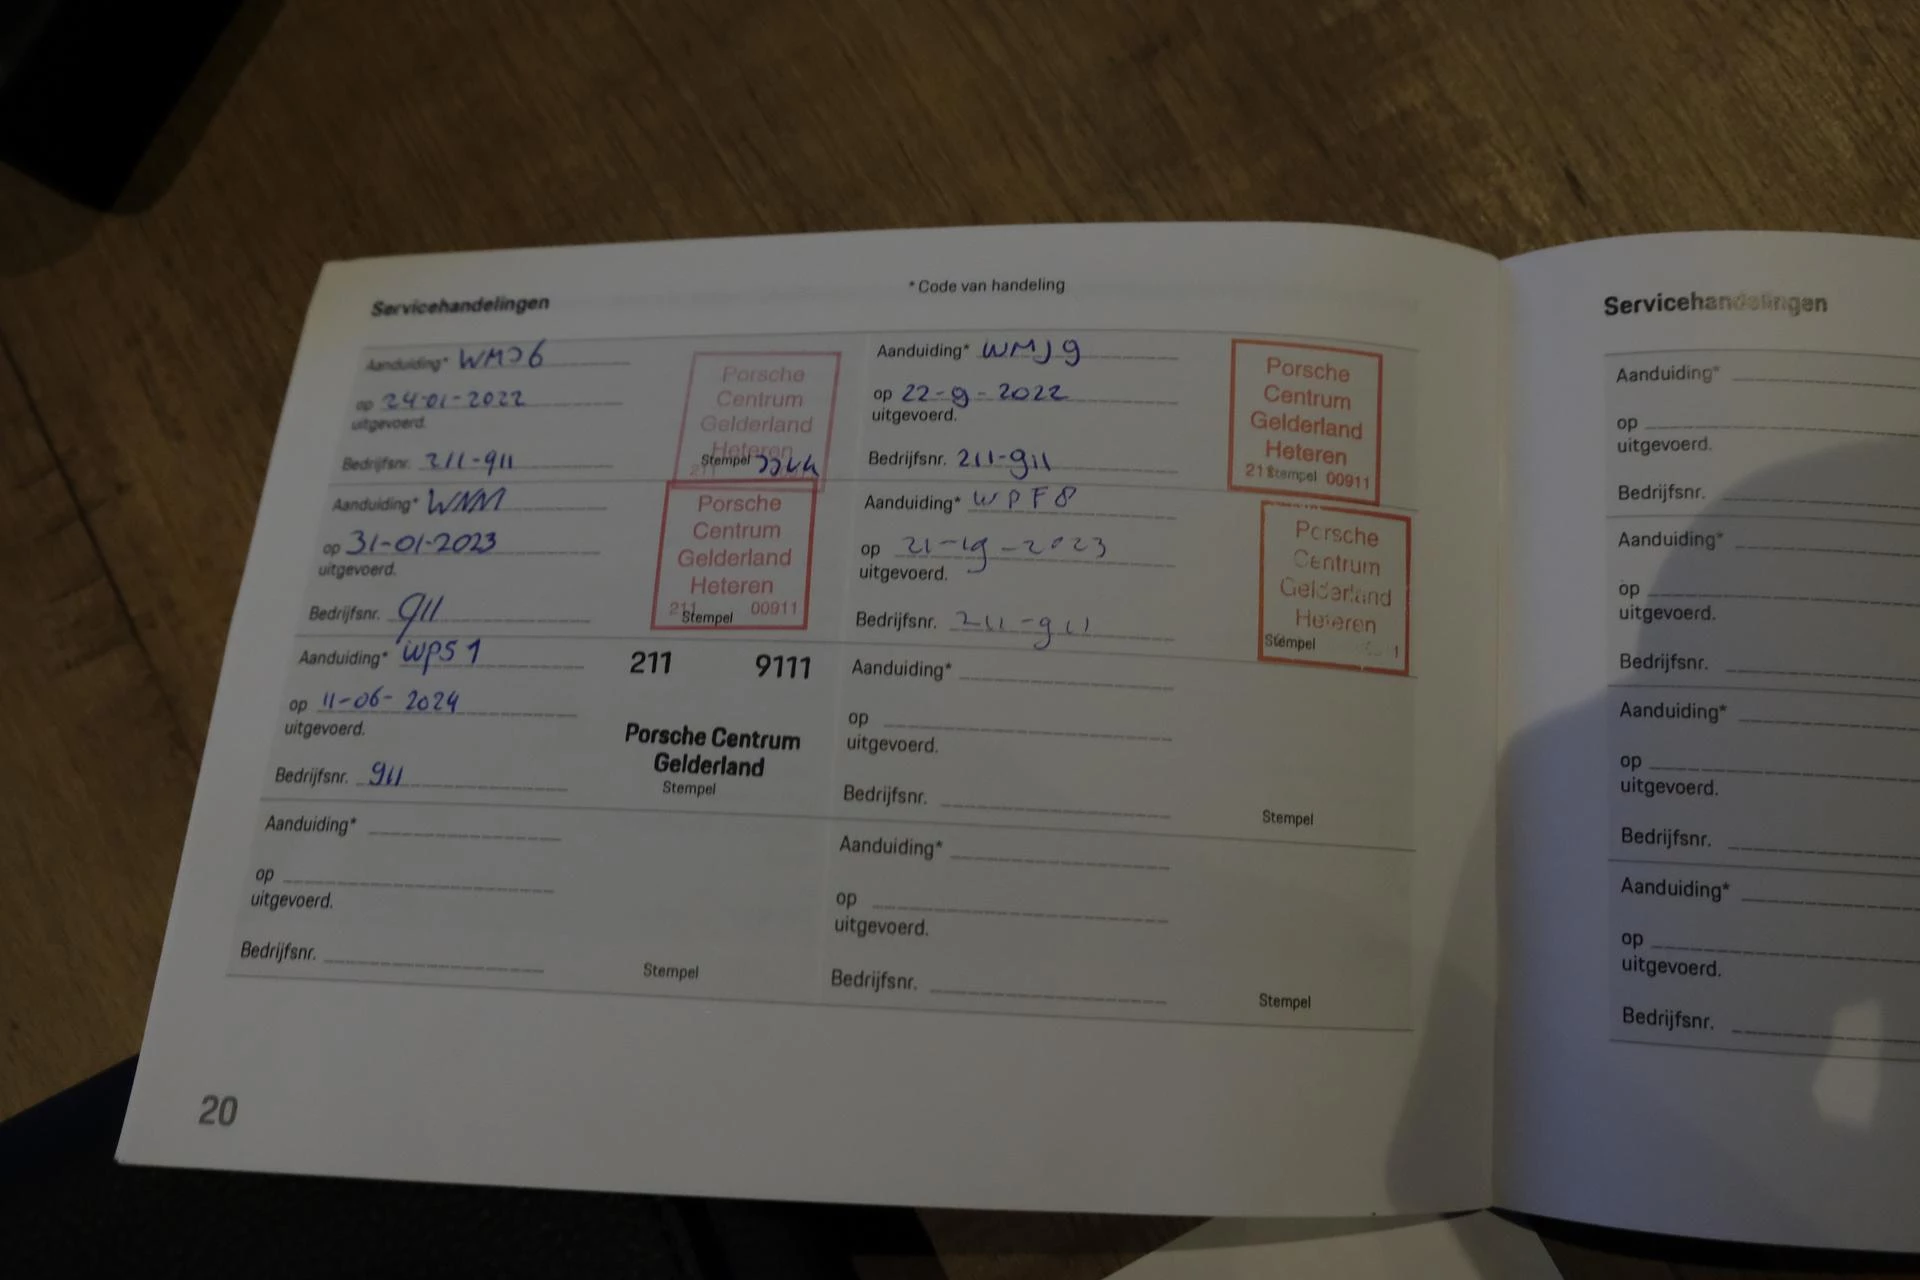 Servicehandelingen
* Code van handeling
Aanduiding* WMJ6
op 24-01-2022
uitgevoerd.
Bedrijfsnr. 211-911
Porsche
Centrum
Gelderland
Heteren
211
Stempel
Aanduiding* WMJ9
op 22-9-2022
uitgevoerd.
Bedrijfsnr. 211-911
Porsche
Centrum
Gelderland
Heteren
211 Stempel 00911
Aanduiding* WNM
op 31-01-2023
uitgevoerd.
Bedrijfsnr. 911
Porsche
Centrum
Gelderland
Heteren
211 00911
Stempel
Aanduiding* WPF8
op 2023
uitgevoerd.
Bedrijfsnr. 211-911
Porsche
Centrum
Gelderland
Heteren
Stempel 1
Aanduiding* WPS1
op 11-06-2024
uitgevoerd.
Bedrijfsnr. 911
211 9111
Porsche Centrum
Gelderland
Stempel
Aanduiding*
op
uitgevoerd.
Bedrijfsnr.
Stempel
Aanduiding*
op
uitgevoerd.
Bedrijfsnr.
Stempel
Aanduiding*
op
uitgevoerd.
Bedrijfsnr.
Stempel
20
Servicehandelingen
Aanduiding*
op
uitgevoerd.
Bedrijfsnr.
Aanduiding*
op
uitgevoerd.
Bedrijfsnr.
Aanduiding*
op
uitgevoerd.
Bedrijfsnr.
Aanduiding*
op
uitgevoerd.
Bedrijfsnr.